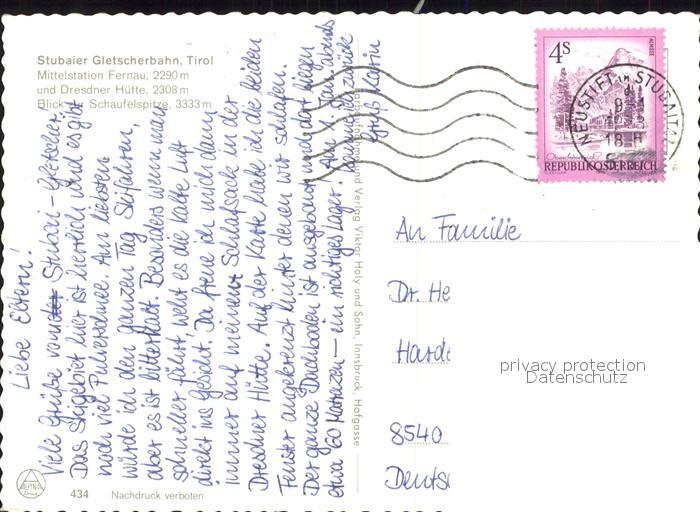 Stubaier Gletscherbahn, Tirol
Mittelstation Fernau, 2290 m
und Dresdner Hütte, 2308 m
Blick zur Schaufelspitze, 3333 m
Liebe Eltern!
Viele Grüße vom Stubai-Gletscher.
Das Skigebiet hier ist herrlich und es gibt
noch viel Pulverschnee. Am liebsten
würde ich den ganzen Tag Skifahren,
aber es ist bitterkalt. Besonders wenn man
schneller fährt, weht es die kalte Luft
direkt ins Gesicht. Da freue ich mich dann
immer auf meinen Schlafsack in der
Dresdner Hütte. Auf der Karte habe ich die beiden
Fenster angekreuzt hinter denen wir schlafen.
Der ganze Dachboden ist ausgebaut und dort liegen
etwa 60 Matrazen – ein richtiges Lager. Am abends
komme ich zurück
Gruß Karin
434 Nachdruck verboten
ALPINA
und Verlag Viktor Holy und Sohn, Innsbruck, Hofgasse
4S
ALMSEE
REPUBLIK ÖSTERREICH
NEUSTIFT IM STUBAITAL
An Familie
Dr. He
Hard
8540
Deuts
privacy protection
Datenschutz